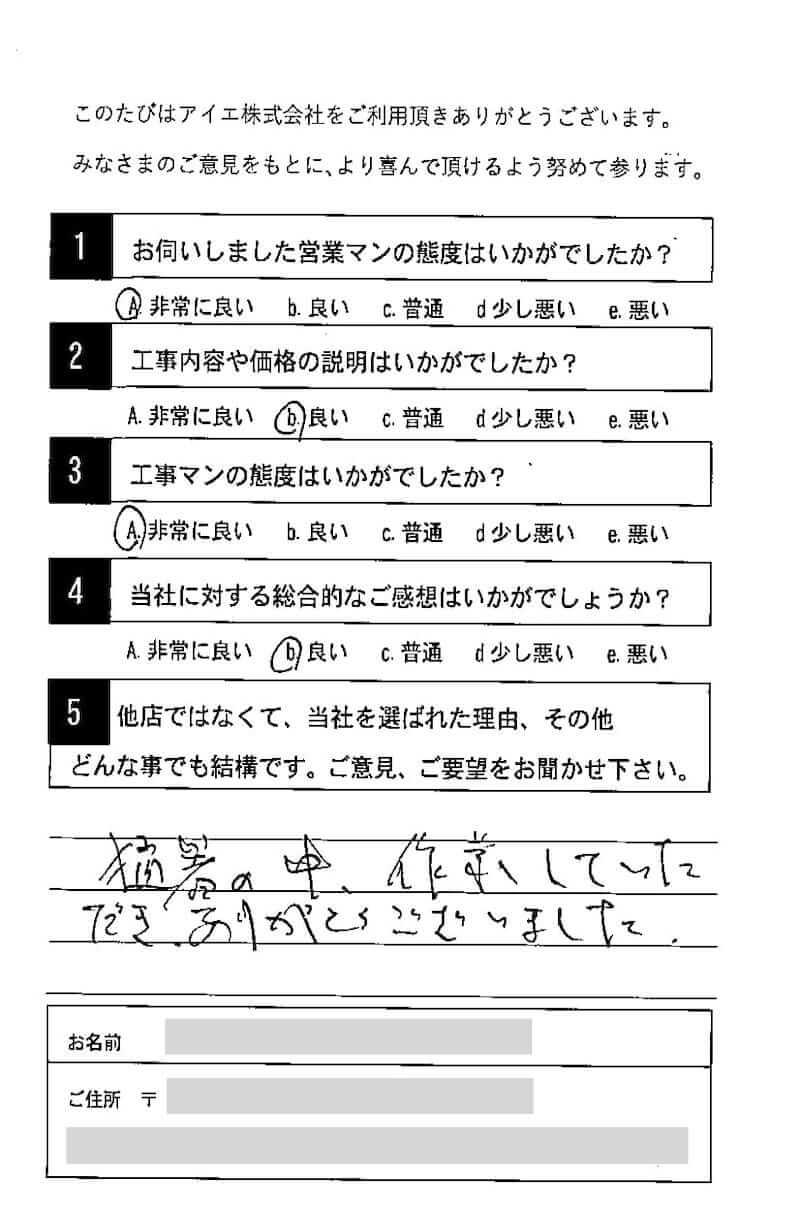 このたびはアイエ株式会社をご利用頂きありがとうございます。
みなさまのご意見をもとに、より喜んで頂けるよう努めて参ります。
1 お伺いしました営業マンの態度はいかがでしたか？
A. 非常に良い b. 良い c. 普通 d 少し悪い e. 悪い
2 工事内容や価格の説明はいかがでしたか？
A. 非常に良い b. 良い c. 普通 d 少し悪い e. 悪い
3 工事マンの態度はいかがでしたか？
A. 非常に良い b. 良い c. 普通 d 少し悪い e. 悪い
4 当社に対する総合的なご感想はいかがでしょうか？
A. 非常に良い b. 良い c. 普通 d 少し悪い e. 悪い
5 他店ではなくて、当社を選ばれた理由、その他
どんな事でも結構です。ご意見、ご要望をお聞かせ下さい。
猛暑の中、作業していた
だき、ありがとうございました。
お名前
ご住所 〒